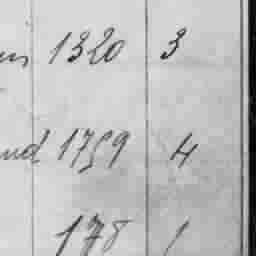 1320 3
1759 4
178 1